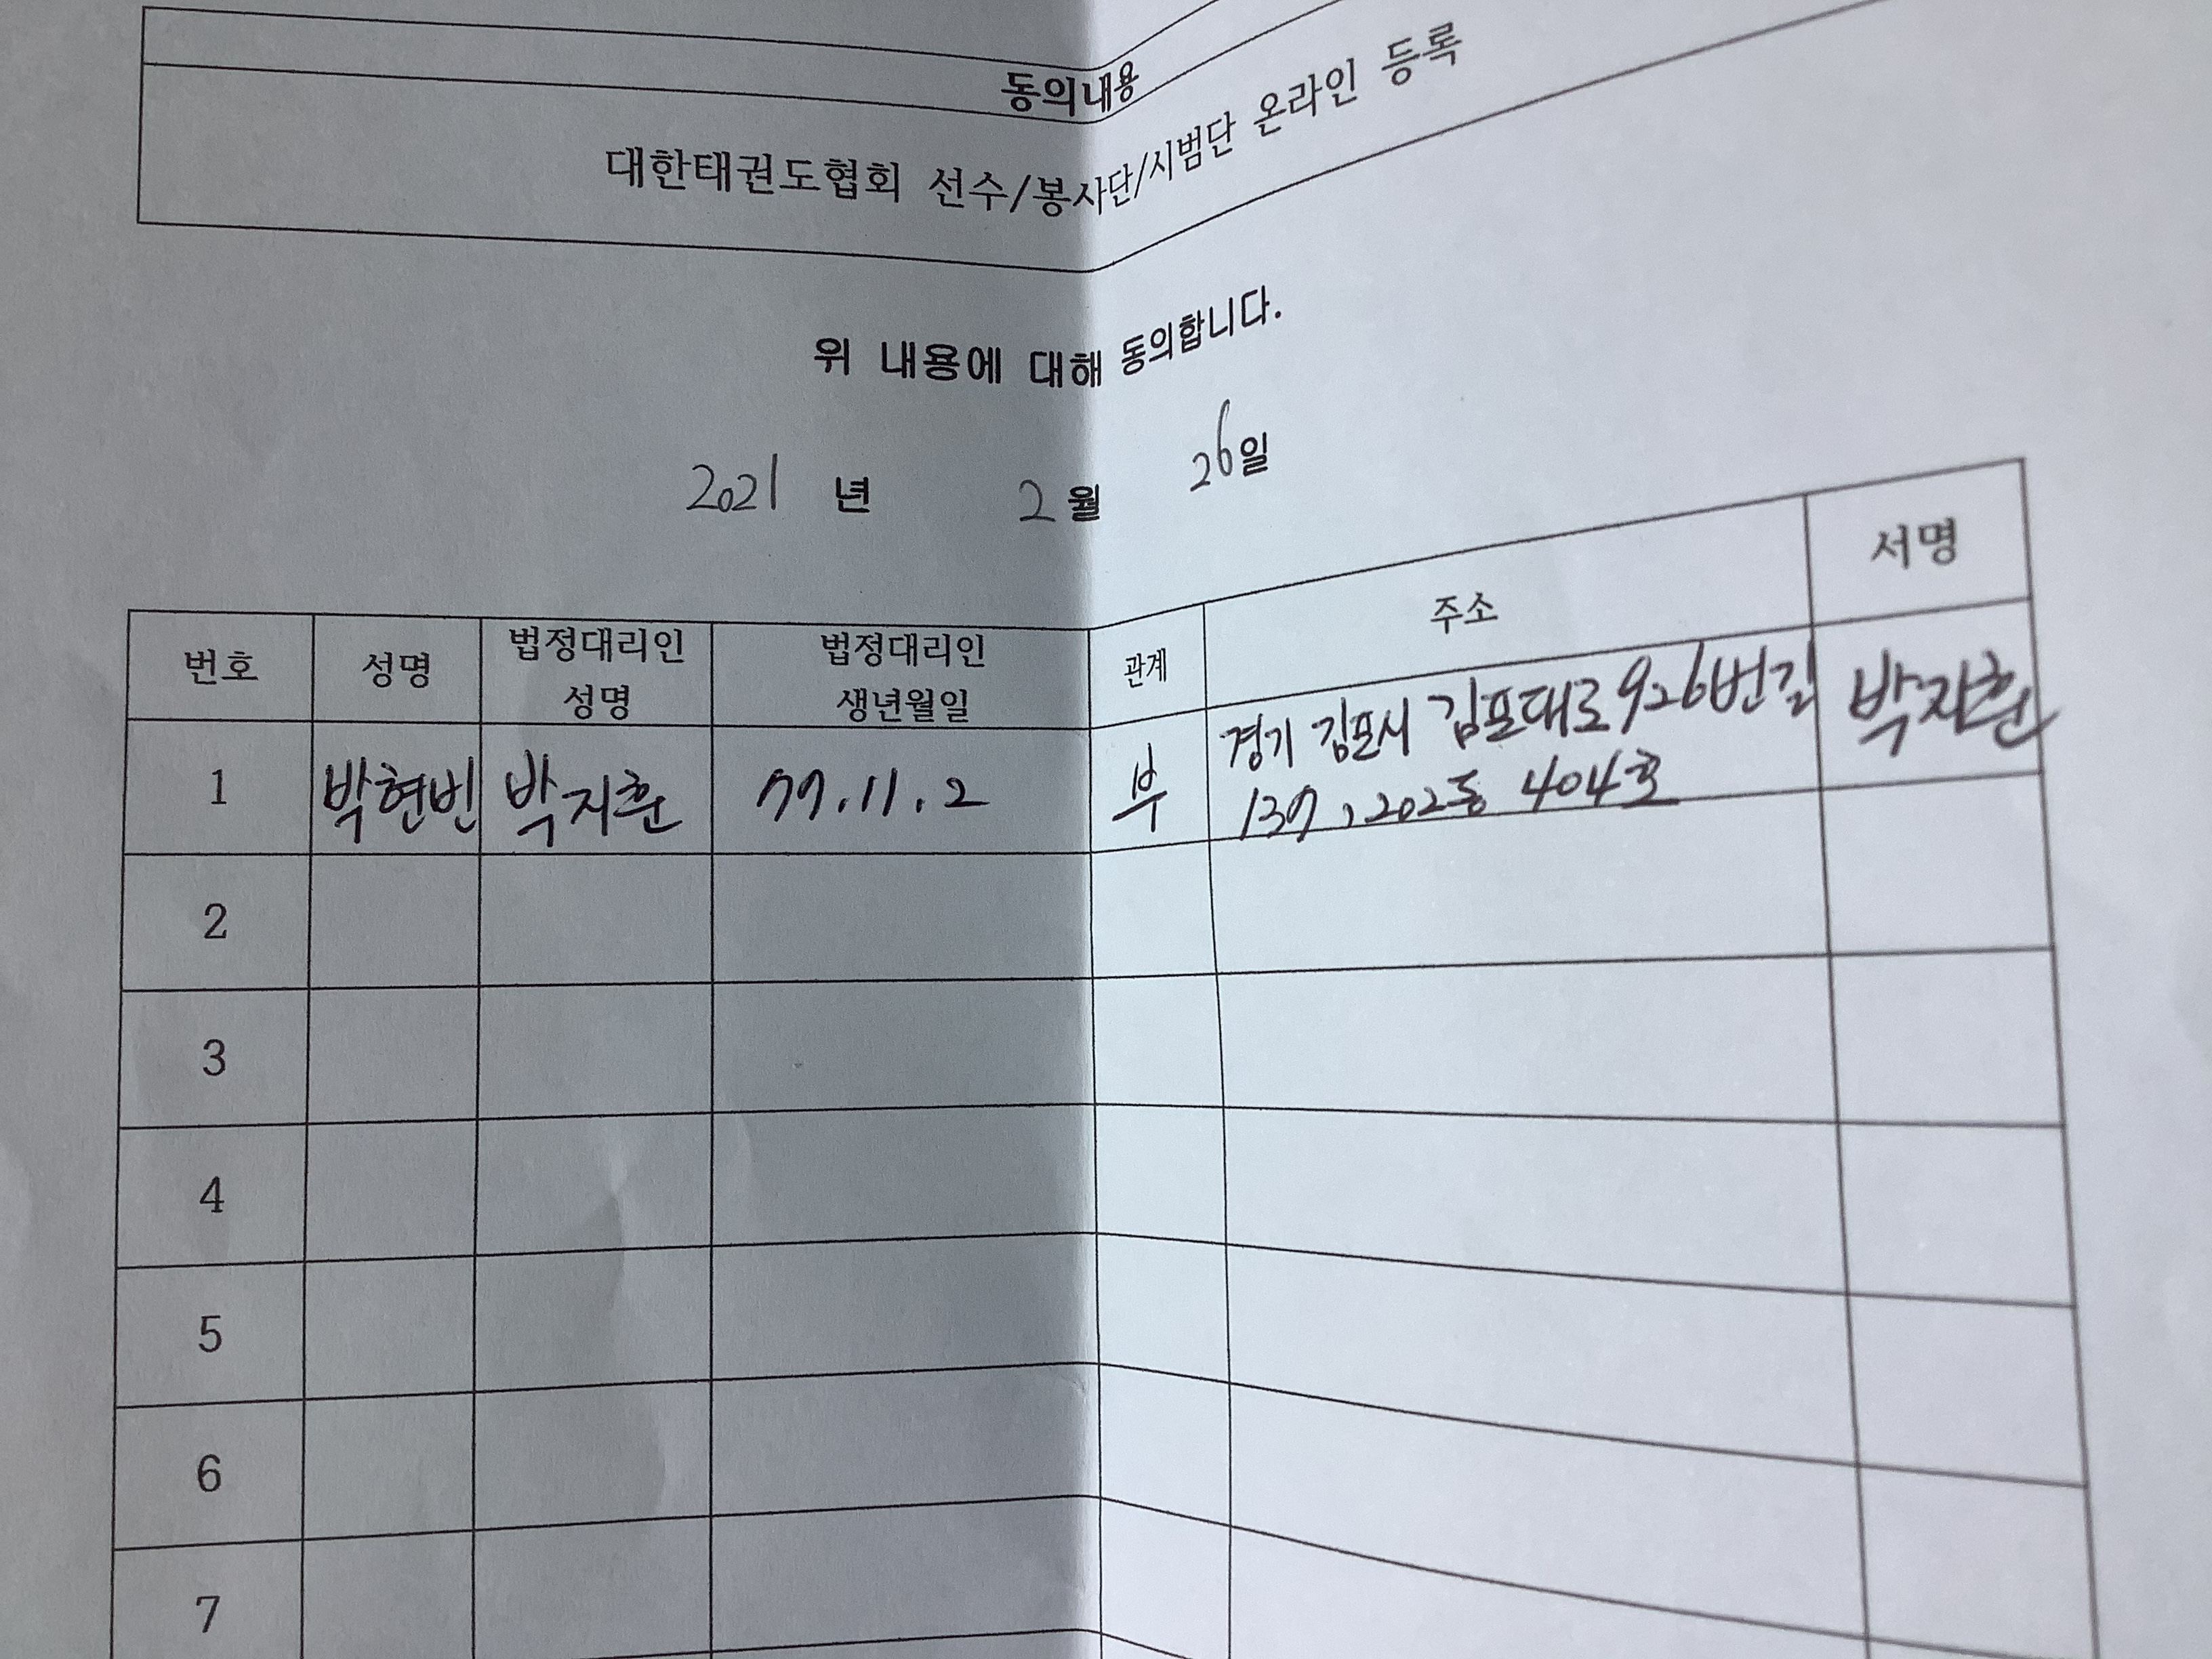 동의내용
대한태권도협회 선수/봉사단/시범단 온라인 등록
위 내용에 대해 동의합니다.
2021 년 2 월 26일
번호 성명 법정대리인 성명 법정대리인 생년월일 관계 주소 서명
1 박현빈 박지훈 77.11.2 부 경기 김포시 김포대로926번길 박지훈
137, 202동 404호
2
3
4
5
6
7